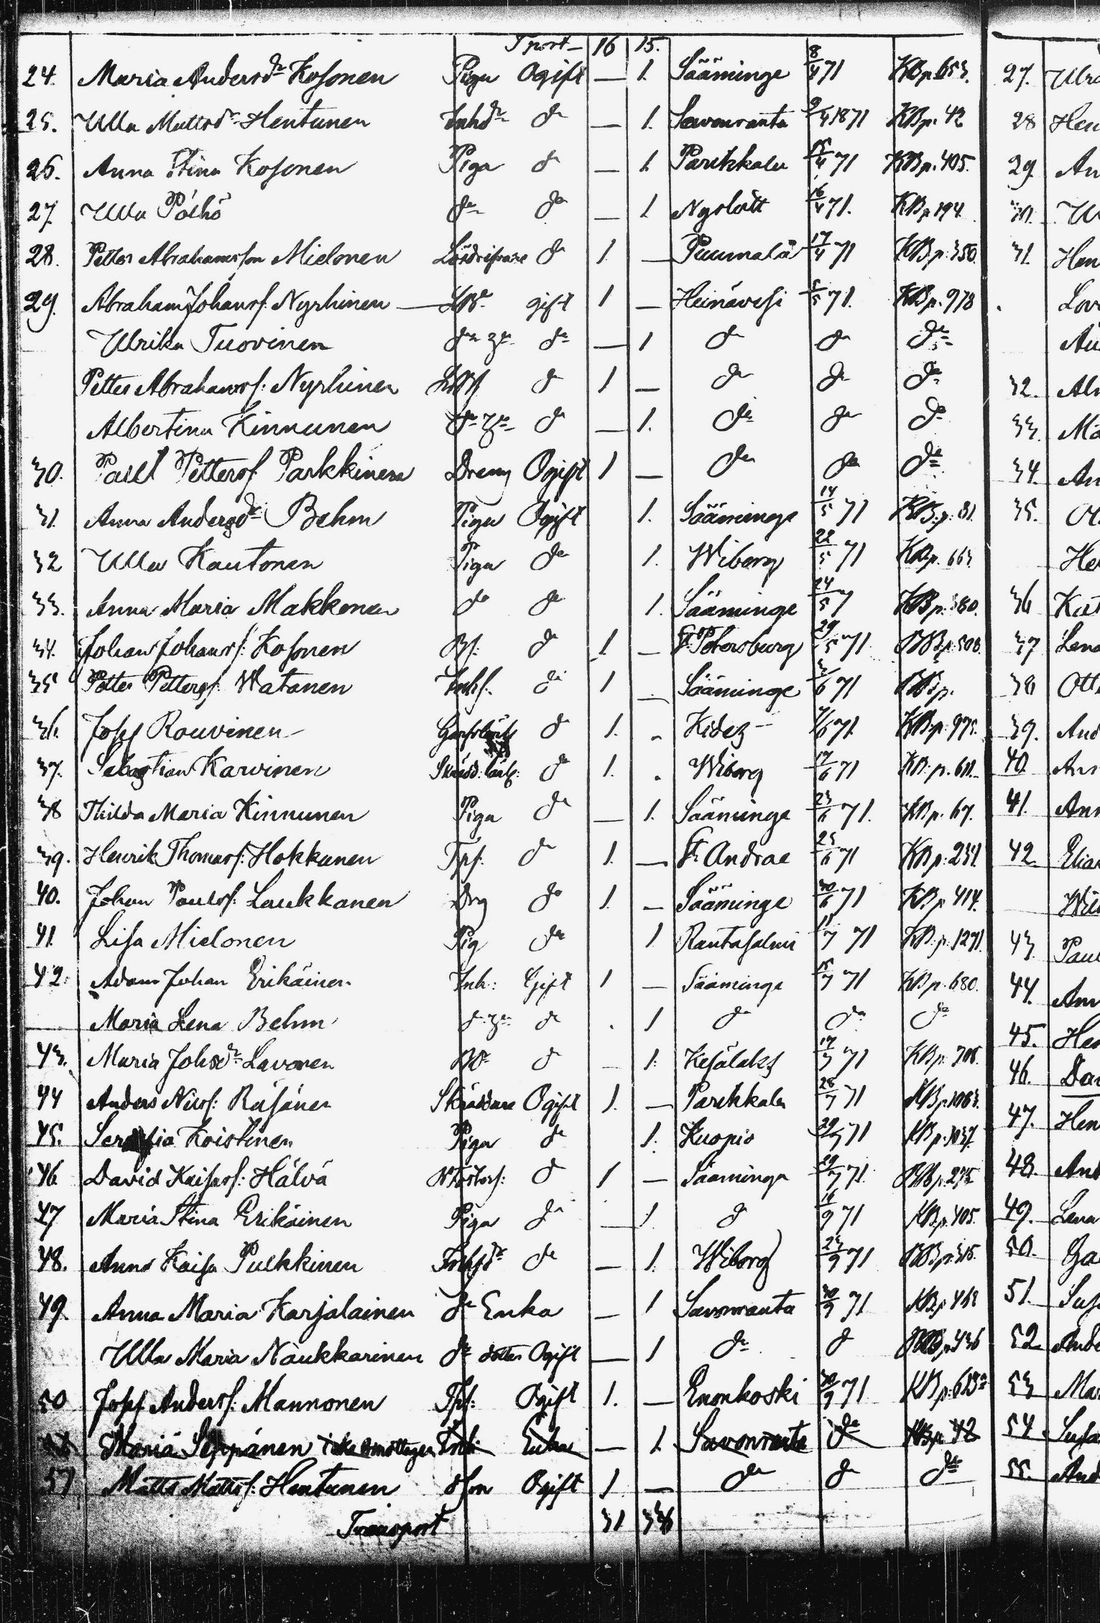 Tport_ 16 15.
24. Maria Andersdr Kosonen Piga Ogift — 1. Sääminge 8/4 71 KBp. 653.
25. Ulla Mattsdr Hentunen Inhdr do — 1. Savonranta 9/4 1871 KBp. 42
26. Anna Stina Kosonen Piga do — 1. Parikkala 15/4 71 KBp. 405.
27. Ulla Pöthö do do — 1 Nyslott 16/4 71. KBp 194.
28. Petter Abrahamsson Mielonen do 1. — Puumala 17/4 71 KBp. 350.
29. Abraham Johansf. Nyrhinen gift 1 — Heinävesi 5/5 71. KBp. 978
Ulrika Tuovinen do do — 1 do do do
Petter Abrahamsf. Nyrhinen do 1 — do do do
Albertina Kinnunen do do — 1. do do do
30. Paul Pettersf Parkkinen Dreng Ogift 1 — do do do
31. Anna Andersdr Behm Piga Ogift 1. Sääminge 14/5 71 KBp. 81.
32 Ulla Kautonen Piga do 1. Wiborg 22/5 71 KBp. 663
33. Anna Maria Makkonen do do 1. Sääminge 24/5 7 KBp. 380.
34. Johan Johansf. Kosonen do 1 — St Petersburg 29/5 71. KBp. 508.
35 Petter Pettersf. Watanen Inhf. do 1 Sääminge 71 KBp.
36. Josef Rouvinen do 1. Kidez 71. KBp. 975.
37. Sebastian Karvinen do 1. Wiborg 17/6 71 KBp. 611.
38 Thilda Maria Kinnunen Piga do 1. Sääminge 23/6 71. KBp. 67.
39. Henrik Thomasf. Hokkanen Tpf. do 1. — St Andrae 25/6 71 KBp. 231
40. Johan Paulsf. Laukkanen Drg do 1. — Sääminge 30/6 71 KBp 414.
41. Lisa Mielonen Pig do 1 Rantasalmi 11/7 71 KBp. 1271.
42. Adam Johan Erikäinen Inh: Gift 1 — Sääminge 15/7 71 KBp. 680.
Maria Lena Behm do do 1 do do do
43. Maria Johsdr Lavonen do 1. Kesälaks 17/7 71 KBp. 708.
44 Anders Nilsf. Räsänen Skräddare Ogift 1. — Parikkala 28/7 71 KBp. 1063.
45. Serafia Koistinen Piga do 1. Kuopio 29/7 71 KBp. 1037.
46 David Kaisasf. Hälvä do 1 — Sääminge 29/7 71. KBp. 275.
47 Maria Stina Erikäinen Piga do — 1. do 16/9 71 KBp. 405.
48. Anna Kaisa Pulkkinen do — 1. Wiborg 23/9 71 KBp. 315.
49. Anna Maria Karjalainen do Enka — 1 Savonranta 30/9 71 KBp 468
Ulla Maria Naukkarinen do dotter Ogift — 1 do do KBp. 436
50 Josef Andersf. Mannonen Tpf. Ogift 1. — Enonkoski 30/9 71 KBp. 615
Maria Seppänen icke emottagen Inh. Enka — 1 Savonranta do KBp 42
51 Matts Mattsf. Hentunen Son Ogift 1 — do do do
Transport 31
27. Ulri
28 Hen
29 An
30. U
31. Hen
Lov
Au
32. Al
33. Ma
34. An
35. Ot
He
36 Kat
37 Lena
38 Otto
39. And
40. Ann
41. Ann
42 Elia
Wil
43. Paul
44. Ann
45. He
46. Da
47. Hen
48. And
49. Lena
50. Ga
51. Susa
52. Ande
53. Mar
54. Susa
55. And